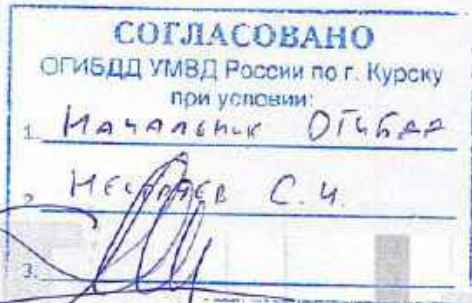 СОГЛАСОВАНО
ОГИБДД УМВД России по г. Курску
при условии:
1. Начальник ОГИБДД
2. С. И.
3.